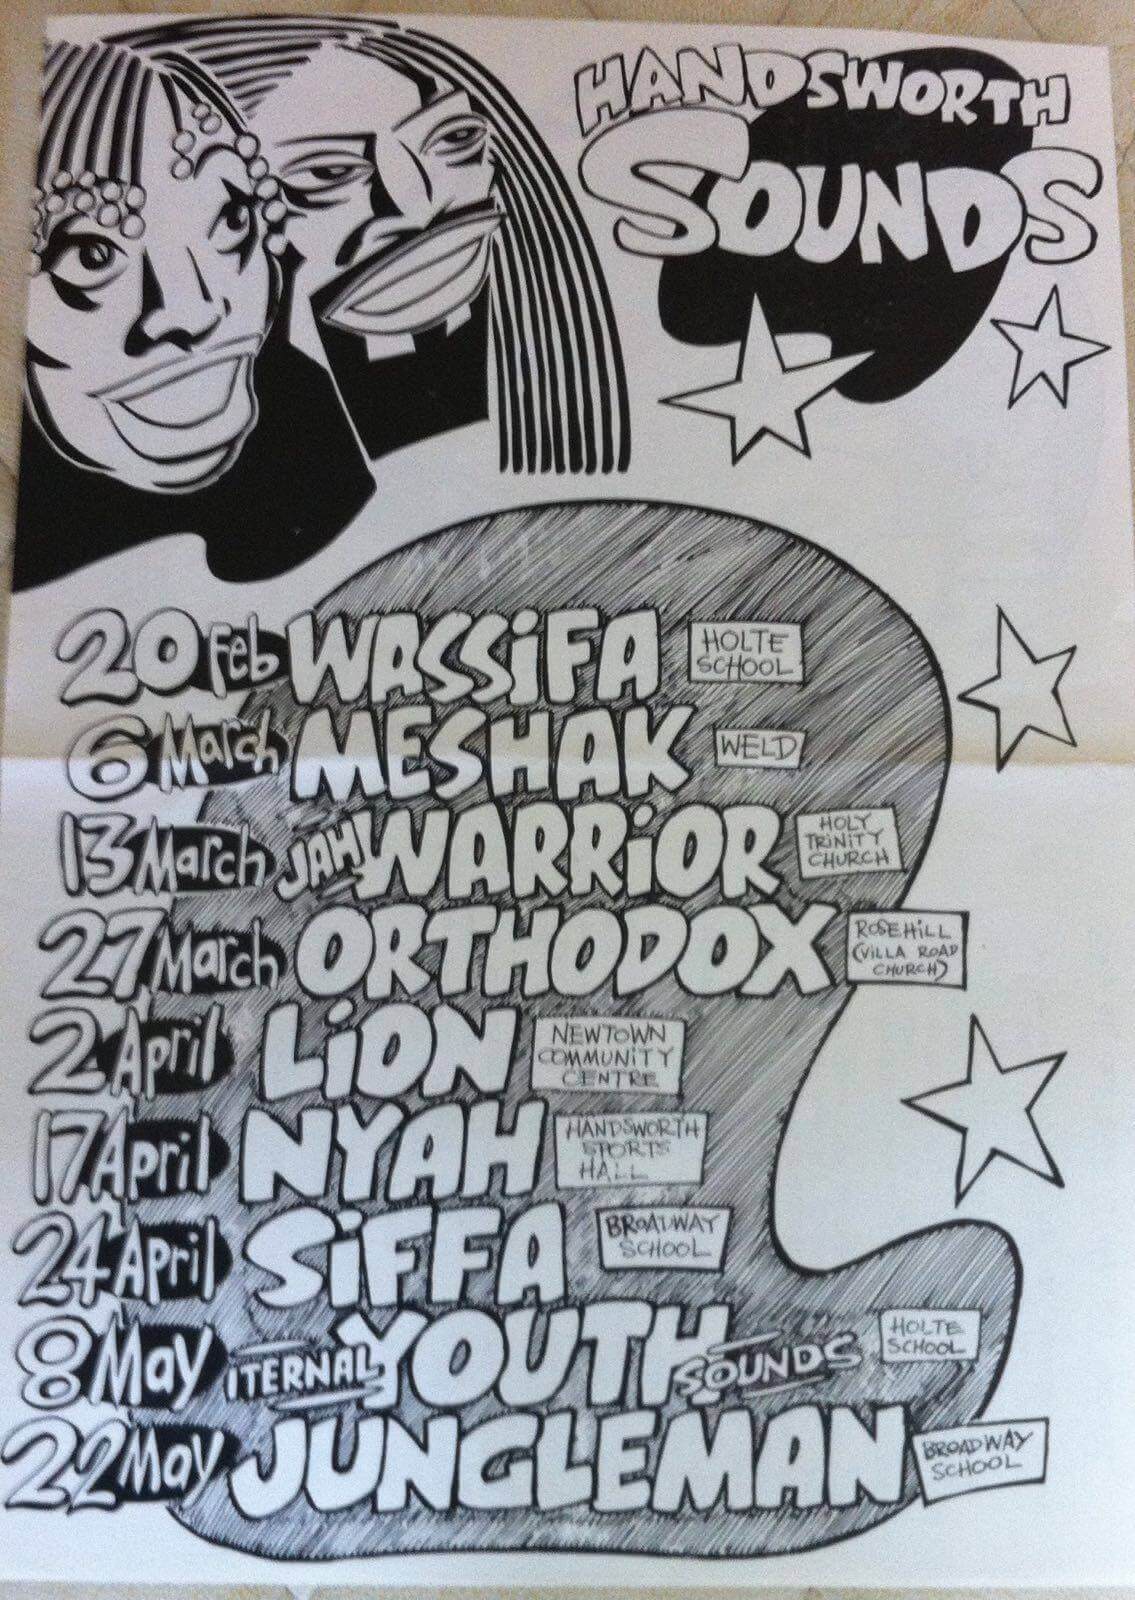 HANDSWORTH
SOUNDS
20 Feb WASSiFA HOLTE SCHOOL
6 March MESHAK WELD
13 March JAH WARRiOR HOLY TRiNiTY CHURCH
27 March ORTHODOX ROSEHiLL (VILLA ROAD CHURCH)
2 April LiON NEWTOWN COMMUNiTY CENTRE
17 April NYAH HANDSWORTH SPORTS HALL
24 April SiFFA BROADWAY SCHOOL
8 May iTERNAL YOUTH SOUNDS HOLTE SCHOOL
22 May JUNGLEMAN BROADWAY SCHOOL